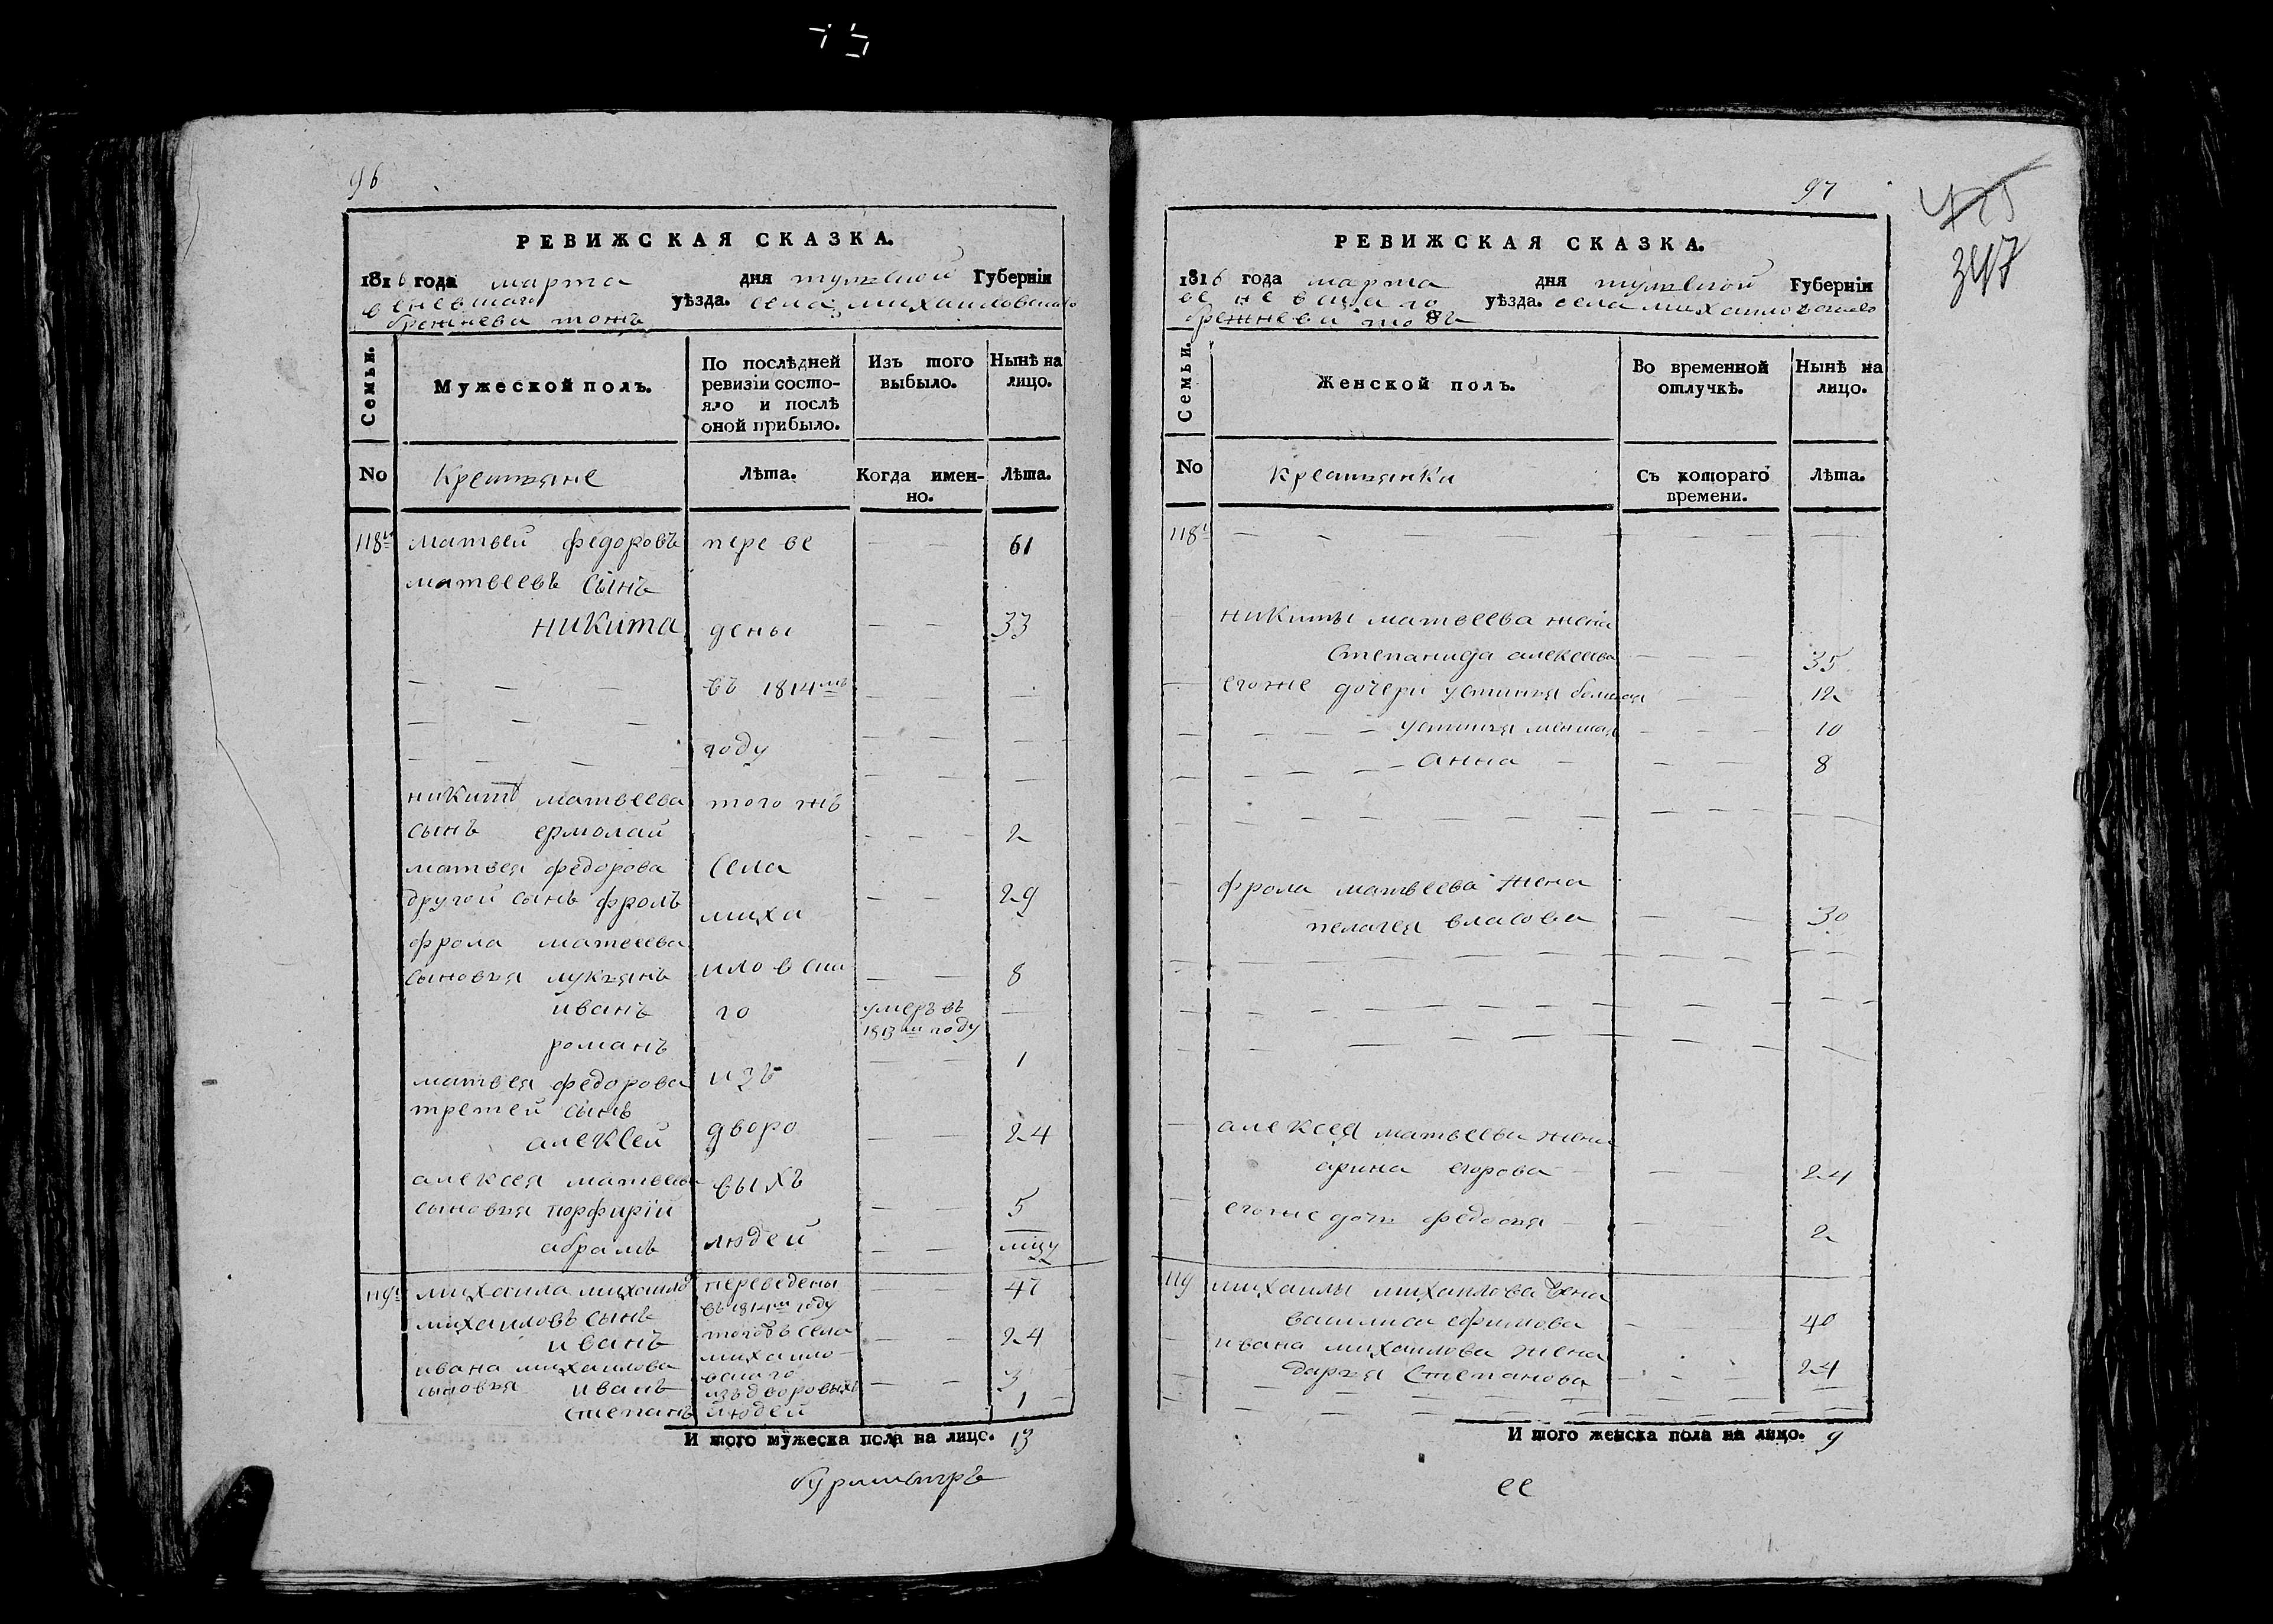 96
РЕВИЖСКАЯ СКАЗКА.
1816 года марта дня тульской Губерніи
веневскаго уѣзда. села михаиловскаго
брежнева тожъ
Семьи.
Мужеской полъ.
По послѣдней ревизіи состояло и послѣ оной прибыло.
Изъ того выбыло.
Нынѣ на лицо.
No
Крестьяне
Лѣта.
Когда именно.
Лѣта.
118й матвей федоровъ переве — — 61
матвеевъ сынъ
никита дены — — 33
— — — въ 1814мъ — — —
— — — году — — —
никиты матвеева того жъ
сынъ ермолай — — — 2
матвея федорова села
другой сынъ фролъ — — 29
миха
фрола матвеева
сыновья лукьянъ иловска — — 8
иванъ го умеръ въ —
1813м году
романъ — — 1
матвея федорова изъ
третей сынъ
алексей дворо — — 24
алексея матвеева выхъ
сыновья порфирій — — 5
абрамъ людей — — мцу
119й михаила михаило переведены — — 47
михаиловъ сынъ въ 1814м году
иванъ тогожъ села — — 24
ивана михаилова михаило-
вскаго
сыновья иванъ изъ дворовыхъ — — 3
степанъ людей 1
И того мужеска пола на лицо. 13
бурмистръ
97
475
347
РЕВИЖСКАЯ СКАЗКА.
1816 года марта дня тульской Губерніи
веневскаго уѣзда. села михаиловскаго
брежнева тожъ
Семьи.
Женской полъ.
Во временной отлучкѣ.
Нынѣ на лицо.
No
крестьянки
Съ котораго времени.
Лѣта.
118й — — — — — — —
никиты матвеева жена
степанида алексеева — — — 35
егожъ дочери устинья большая — 12
— — — — устинья меншая — — — 10
— — — — анна — — — 8
фрола матвеева жена
пелагея власова — — 30
алексея матвеева жена
арина егорова — — — 24
егоже дочь федосья — — — 2
119 михаилы михаилова жена
василиса ефимова — — 40
ивана михаилова жена
дарья степанова — — — 24
И того женска пола на лицо. 9
ее